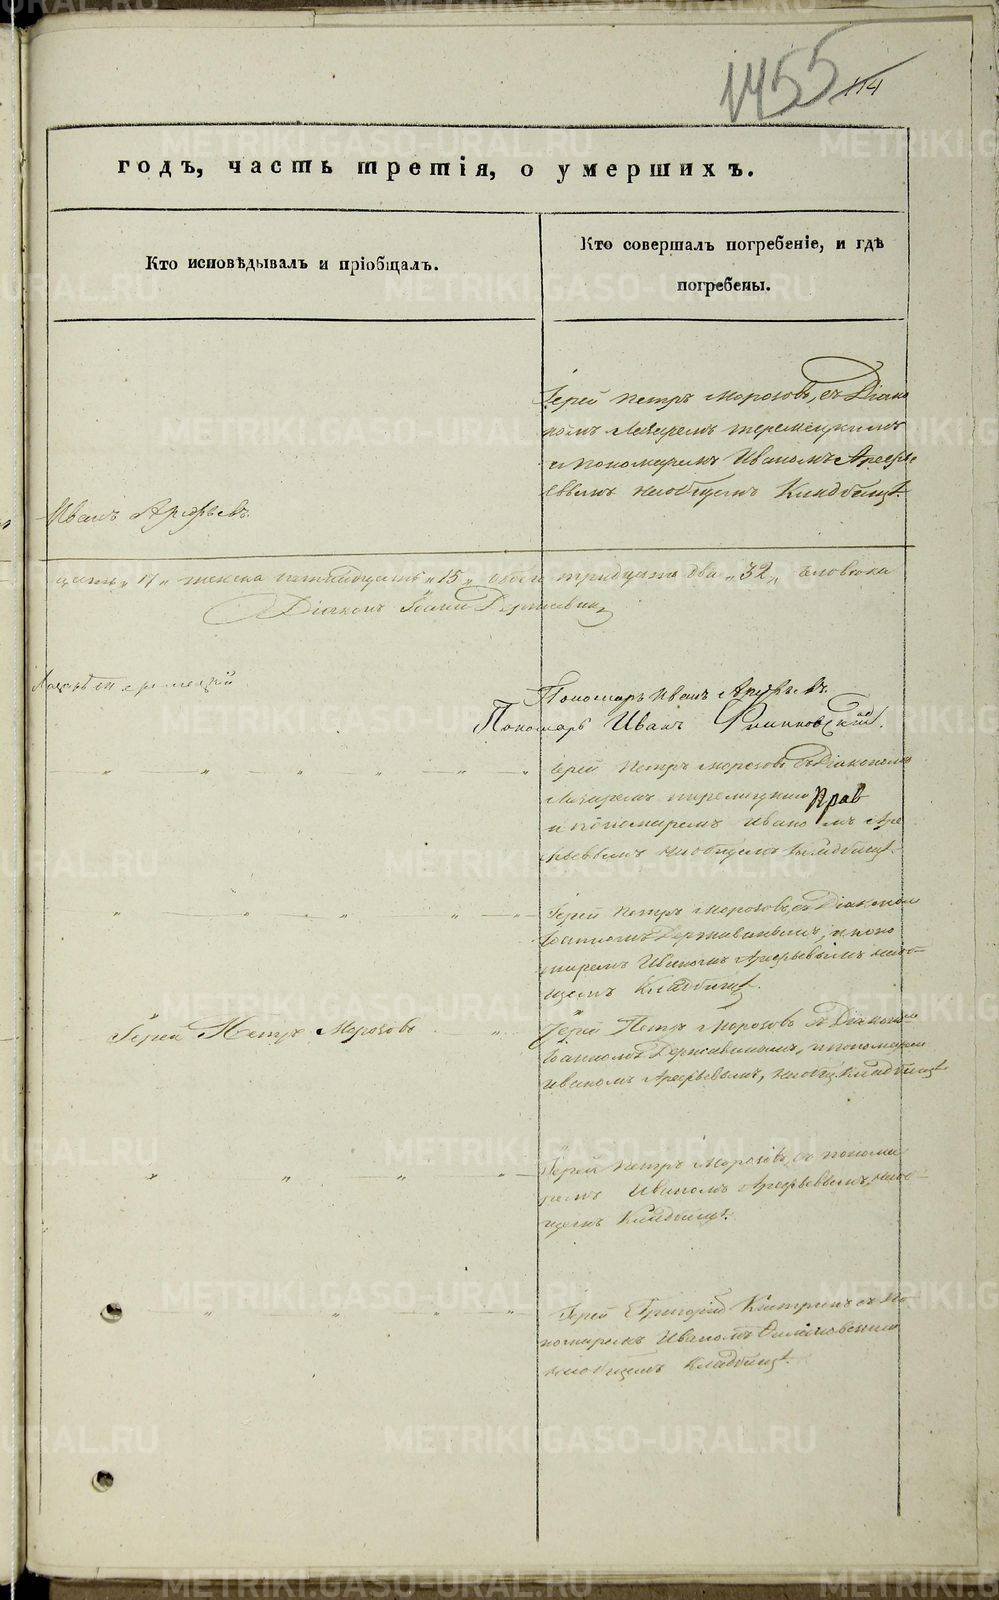 1455 114
годъ, часть третія, о умершихъ.
Кто исповѣдывалъ и пріобщалъ.
Кто совершалъ погребеніе, и гдѣ
погребены.
Іерей Петръ Морозовъ, съ Діако
номъ Лазаремъ
и пономаремъ Иваномъ Арефье
евымъ на общемъ Кладбищѣ.
Иванъ Арефьевъ.
17 женска пятнадцать 15 обоего тридцать два 32 человека
Діаконъ Іоаннъ Державинъ
Лазарь
Пономарь Иванъ Арефьевъ.
Пономарь Иванъ
Іерей Петръ Морозовъ съ Діакономъ
Лазаремъ
и пономаремъ Иваномъ Аре
фьевымъ на общемъ Кладбищѣ.
Іерей Петръ Морозовъ, съ Діакономъ
Іоанномъ Державинымъ, и поно
маремъ Иваномъ Арефьевымъ на об-
щемъ Кладбищѣ.
Іерей Петръ Морозовъ
Іерей Петръ Морозовъ съ Діакономъ
Іоанномъ Державинымъ, и пономаремъ
Иваномъ Арефьевымъ, на общ. Кладбищѣ
Іерей Петръ Морозовъ, съ понома
ремъ Иваномъ Арефьевымъ, на об-
щемъ Кладбищѣ.
Іерей Григорій съ По
номаремъ Иваномъ
на общемъ Кладбищѣ.
METRIKI.GASO-URAL.RU